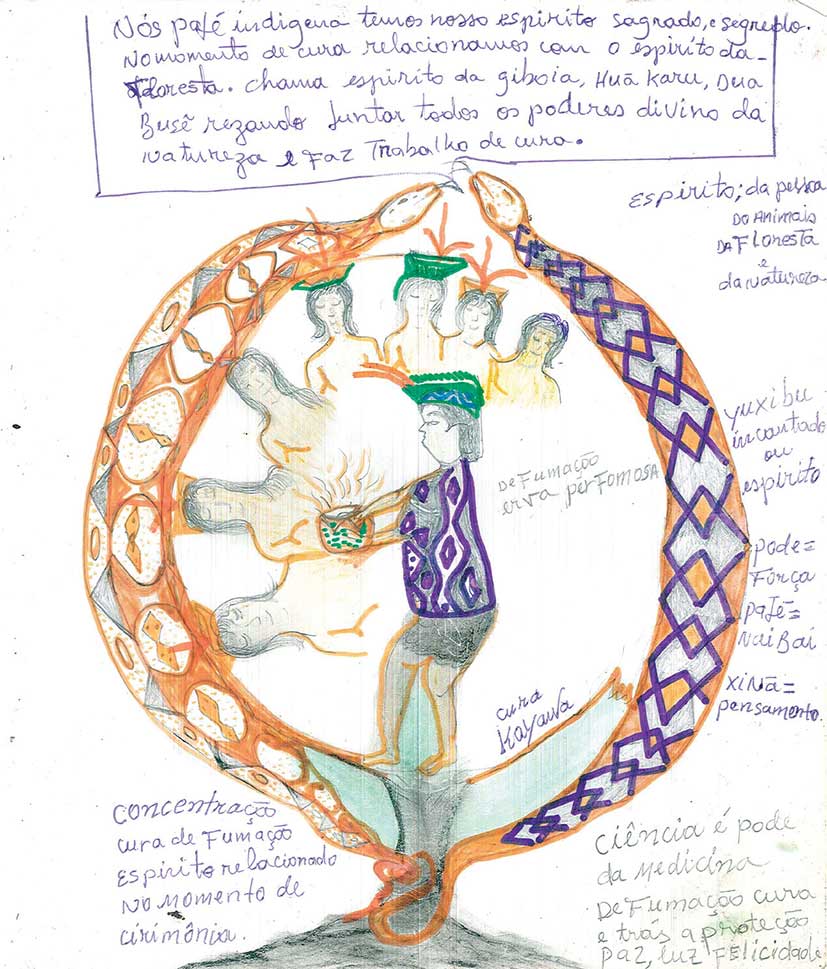 Nós pajé indigena temos nosso espirito sagrado, e segredo.
No momento de cura relacionamos com o espirito da
floresta. chama espirito da giboia, Huã Karu, Dua
Busẽ rezando Juntar todos os poderes divino da
natureza e Faz Trabalho de cura.
Espirito; da pessoa
Do Animais
DA Floresta
e
da natureza
yuxibu
incantado
ou
espirito
DeFumação
erva perFomosa
pode=
Força
pajé=
naiBai
xinã=
pensamento.
cura
Kayawa
concentração
cura de Fumação
Espirito relacionado
No momento de
cirimônia.
Ciência é pode
da Medicina
DeFumação cura
e trás a proteção
paz, luz Felicidade